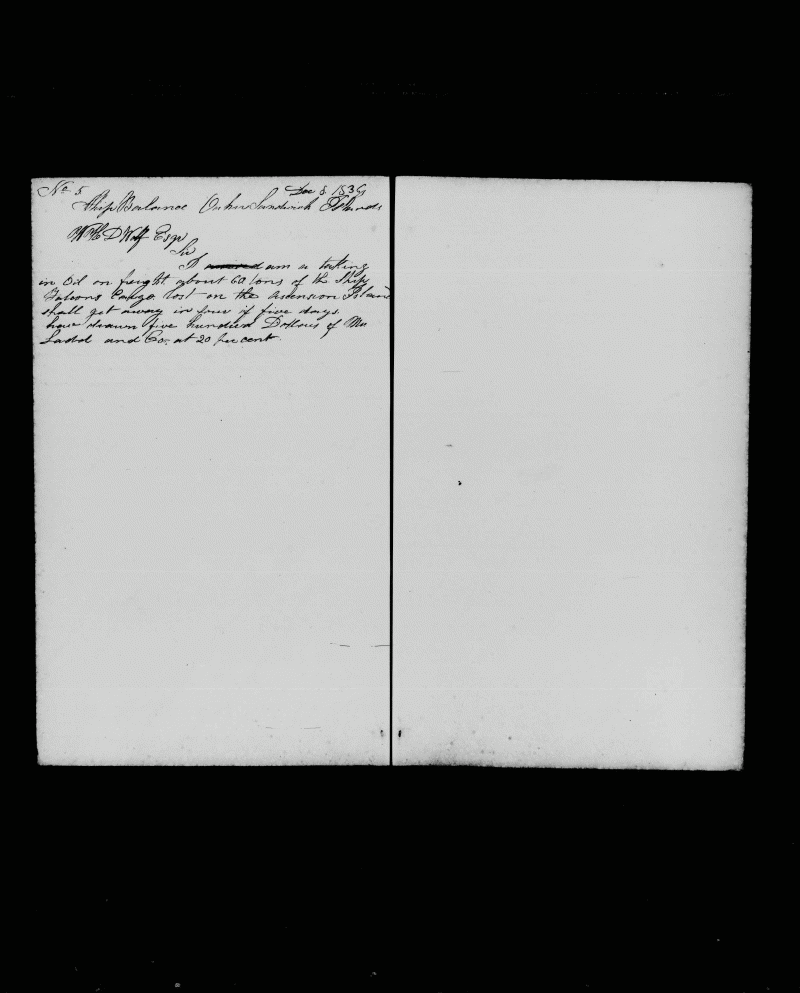 No 5 Dec 8 1836
Ship Balance Oahu Sandwich Islands
Wm H D Wolf Esqr
Sir
I am a taking
in Oil on freight about 60 tons of the Ship
Falcons Cargo lost on the ascension Island
shall get away in four if five days
have drawn five hundred Dollars of Mr
Ladd and Co. at 20 per cent.